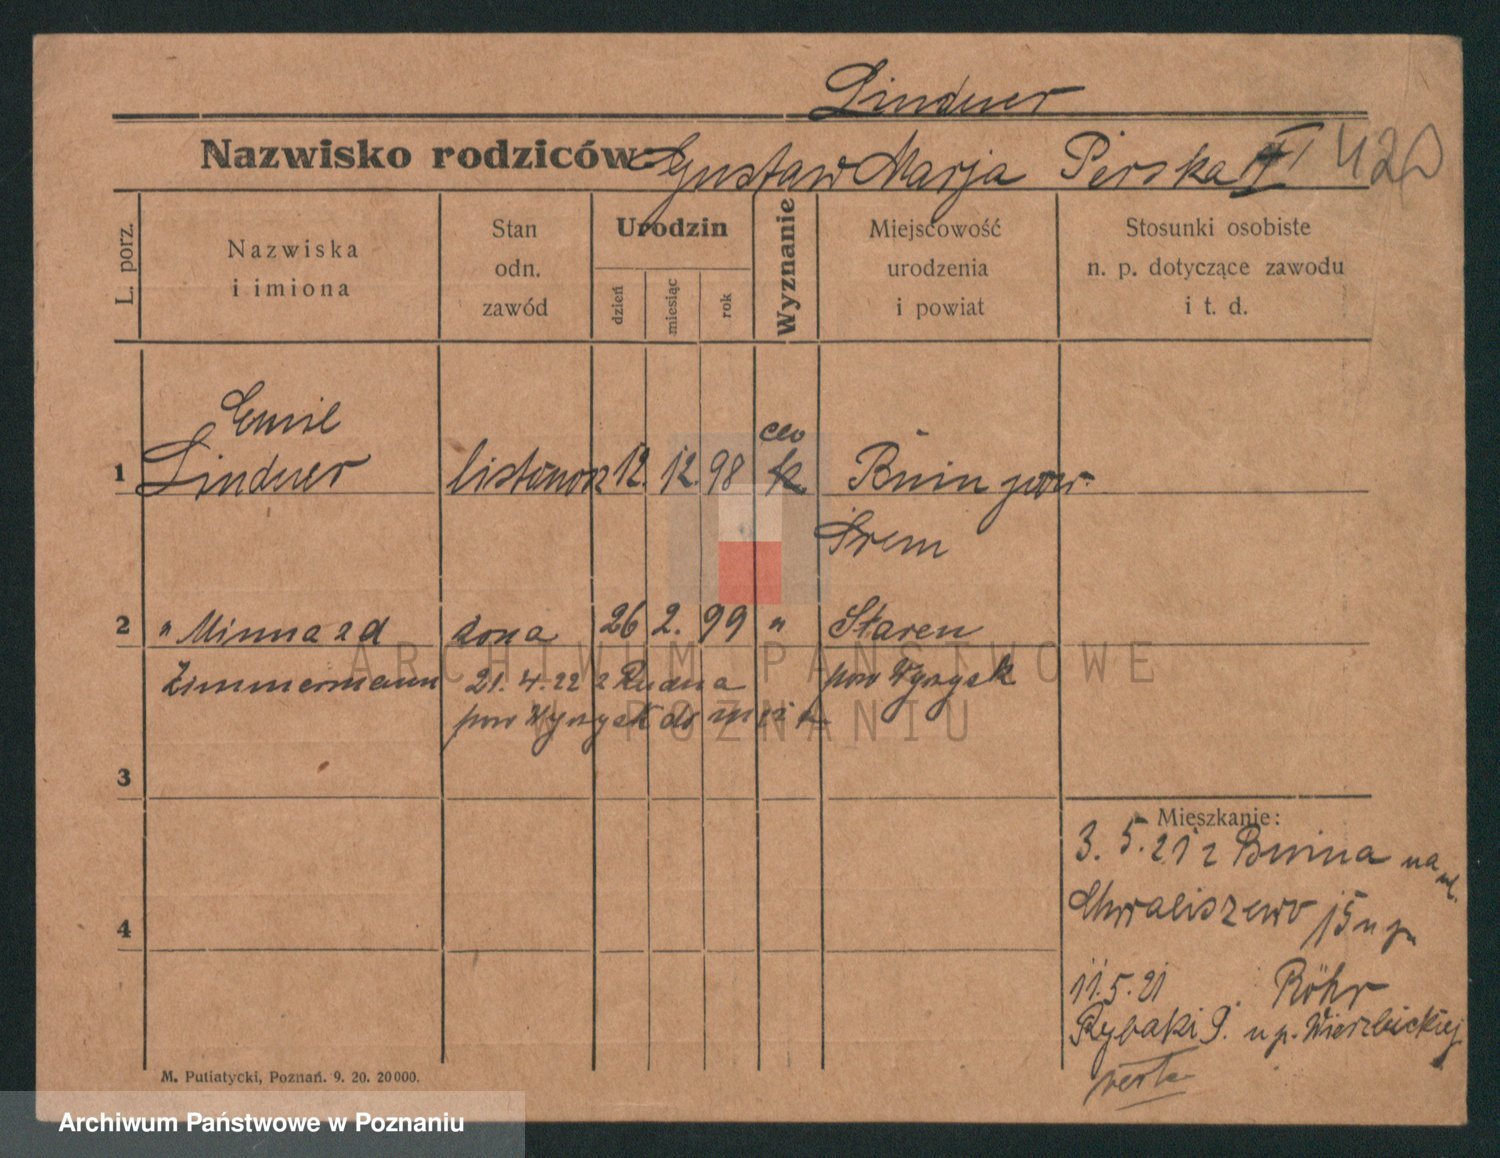 Lindner
Nazwisko rodziców: Gustaw Marja Perska 420
L. porz.
Nazwiska
i imiona
Stan
odn.
zawód
Urodzin
dzień
miesiąc
rok
Wyznanie
Miejscowość
urodzenia
i powiat
Stosunki osobiste
n. p. dotyczące zawodu
i t. d.
Emil
1 Lindner listonosz 12. 12. 98 ew Bnin pow.
Śrem
2 " Minna zd żona 26 2. 99 " Staren
Zimmermann 21. 4. 22 z Rudna pow Wyrzysk
pow Wyrzysk do
3
4
Mieszkanie:
3. 5. 21 z Bnina na ul.
Chwaliszewo 15 u p.
11. 5. 21 Röhr
Rybaki 9. u p. Wierzbickiej
verte
M. Putiatycki, Poznań. 9. 20. 20000.
ARCHIWUM PAŃSTWOWE
W POZNANIU
Archiwum Państwowe w Poznaniu